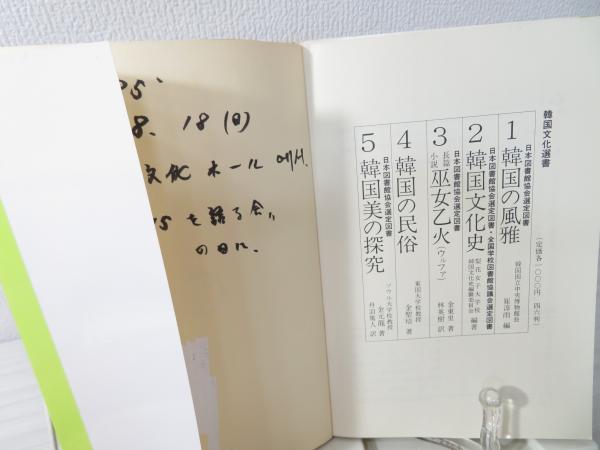 05'
8. 18(日)
文化ホール에서.
を語る会"
の日に.
韓国文化選書
(定価各一〇〇〇円 四六判)
日本図書館協会選定図書
1 韓国の風雅
韓国国立中央博物館長 崔淳雨 編
日本図書館協会選定図書・全国学校図書館協議会選定図書
2 韓国文化史
梨花女子大学校 韓国文化史編纂委員会 編著
日本図書館協会選定図書
3 長篇小説 巫女乙火(ウルファ)
金東里 著
林英樹 訳
日本図書館協会選定図書
4 韓国の民俗
東国大学校教授 金聖培 著
日本図書館協会選定図書
5 韓国美の探究
ソウル大学校教授 金元龍 著
井泊篤人 訳